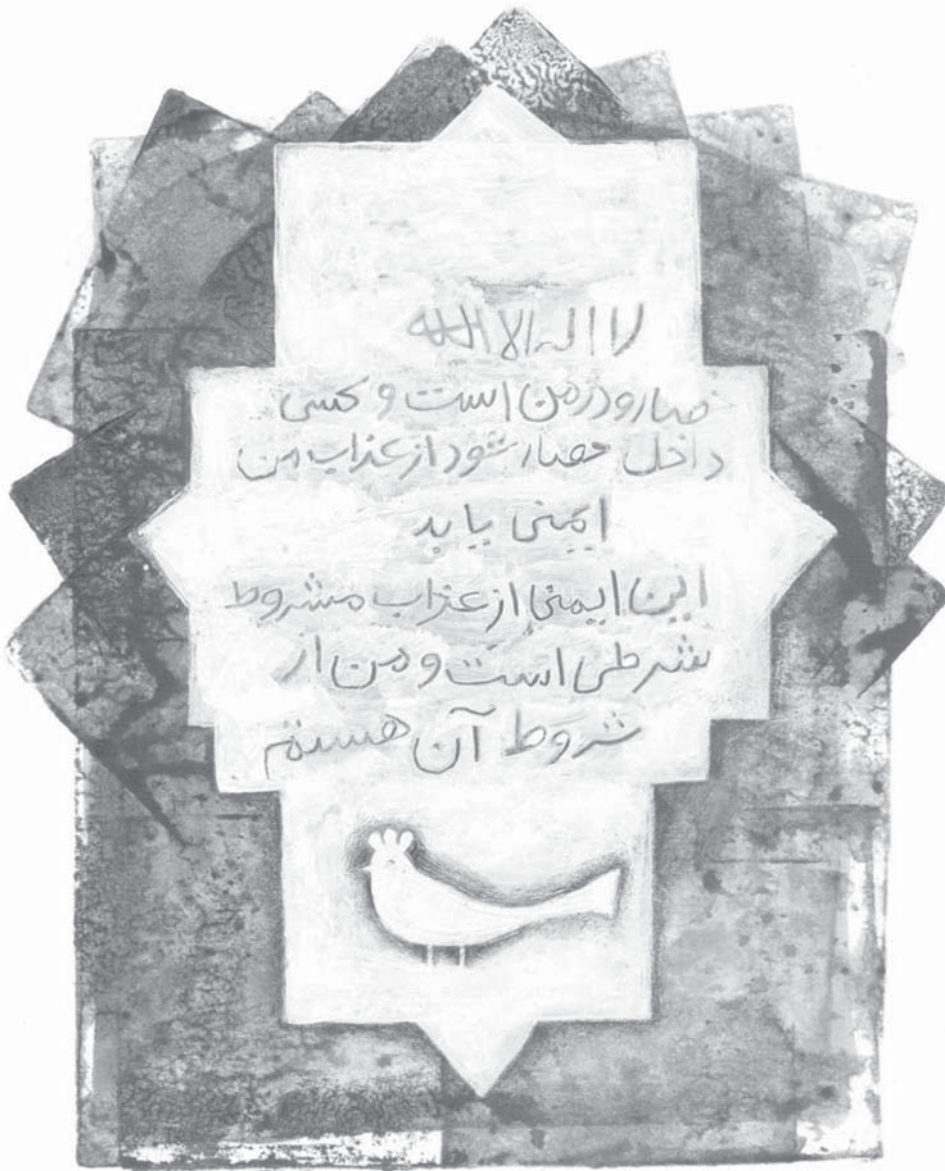 لا اله الا الله
حصارو در من است و کسی
داخل حصار شود از عذاب من
ایمنی یابد
این ایمنی از عذاب مشروط
شرطی است و من از
شروط آن هستم